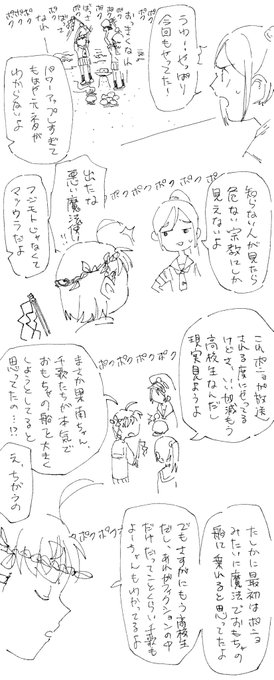 うわー、やっぱり
今回もやってた!
おおきくなれ
ポクポクポクポク
パワーアップしすぎて
もはや元ネタが
わからないよ
ポクポクポクポク
知らない人が見たら
危ない宗教にしか
見えないよ
出たな
悪い魔法使い!!
フジモトじゃなくて
マツウラだよ
ポクポクポクポク
これポニョが放送
される度にやってる
けどさ、いい加減もう
高校生なんだし
現実見ようよ
まさか果南ちゃん、
千歌たちが本気で
おもちゃの船を大きく
しようとしてると
思ってたの…!?
え、ちがうの
ポクポクポクポク
たしかに最初はポニョ
みたいに魔法でおもちゃの
船に乗れると思ってたよ
でもさすがにもう高校生
だし、あれがフィクションの中
だけだってことくらい千歌も
よーちゃんもわかってるよ